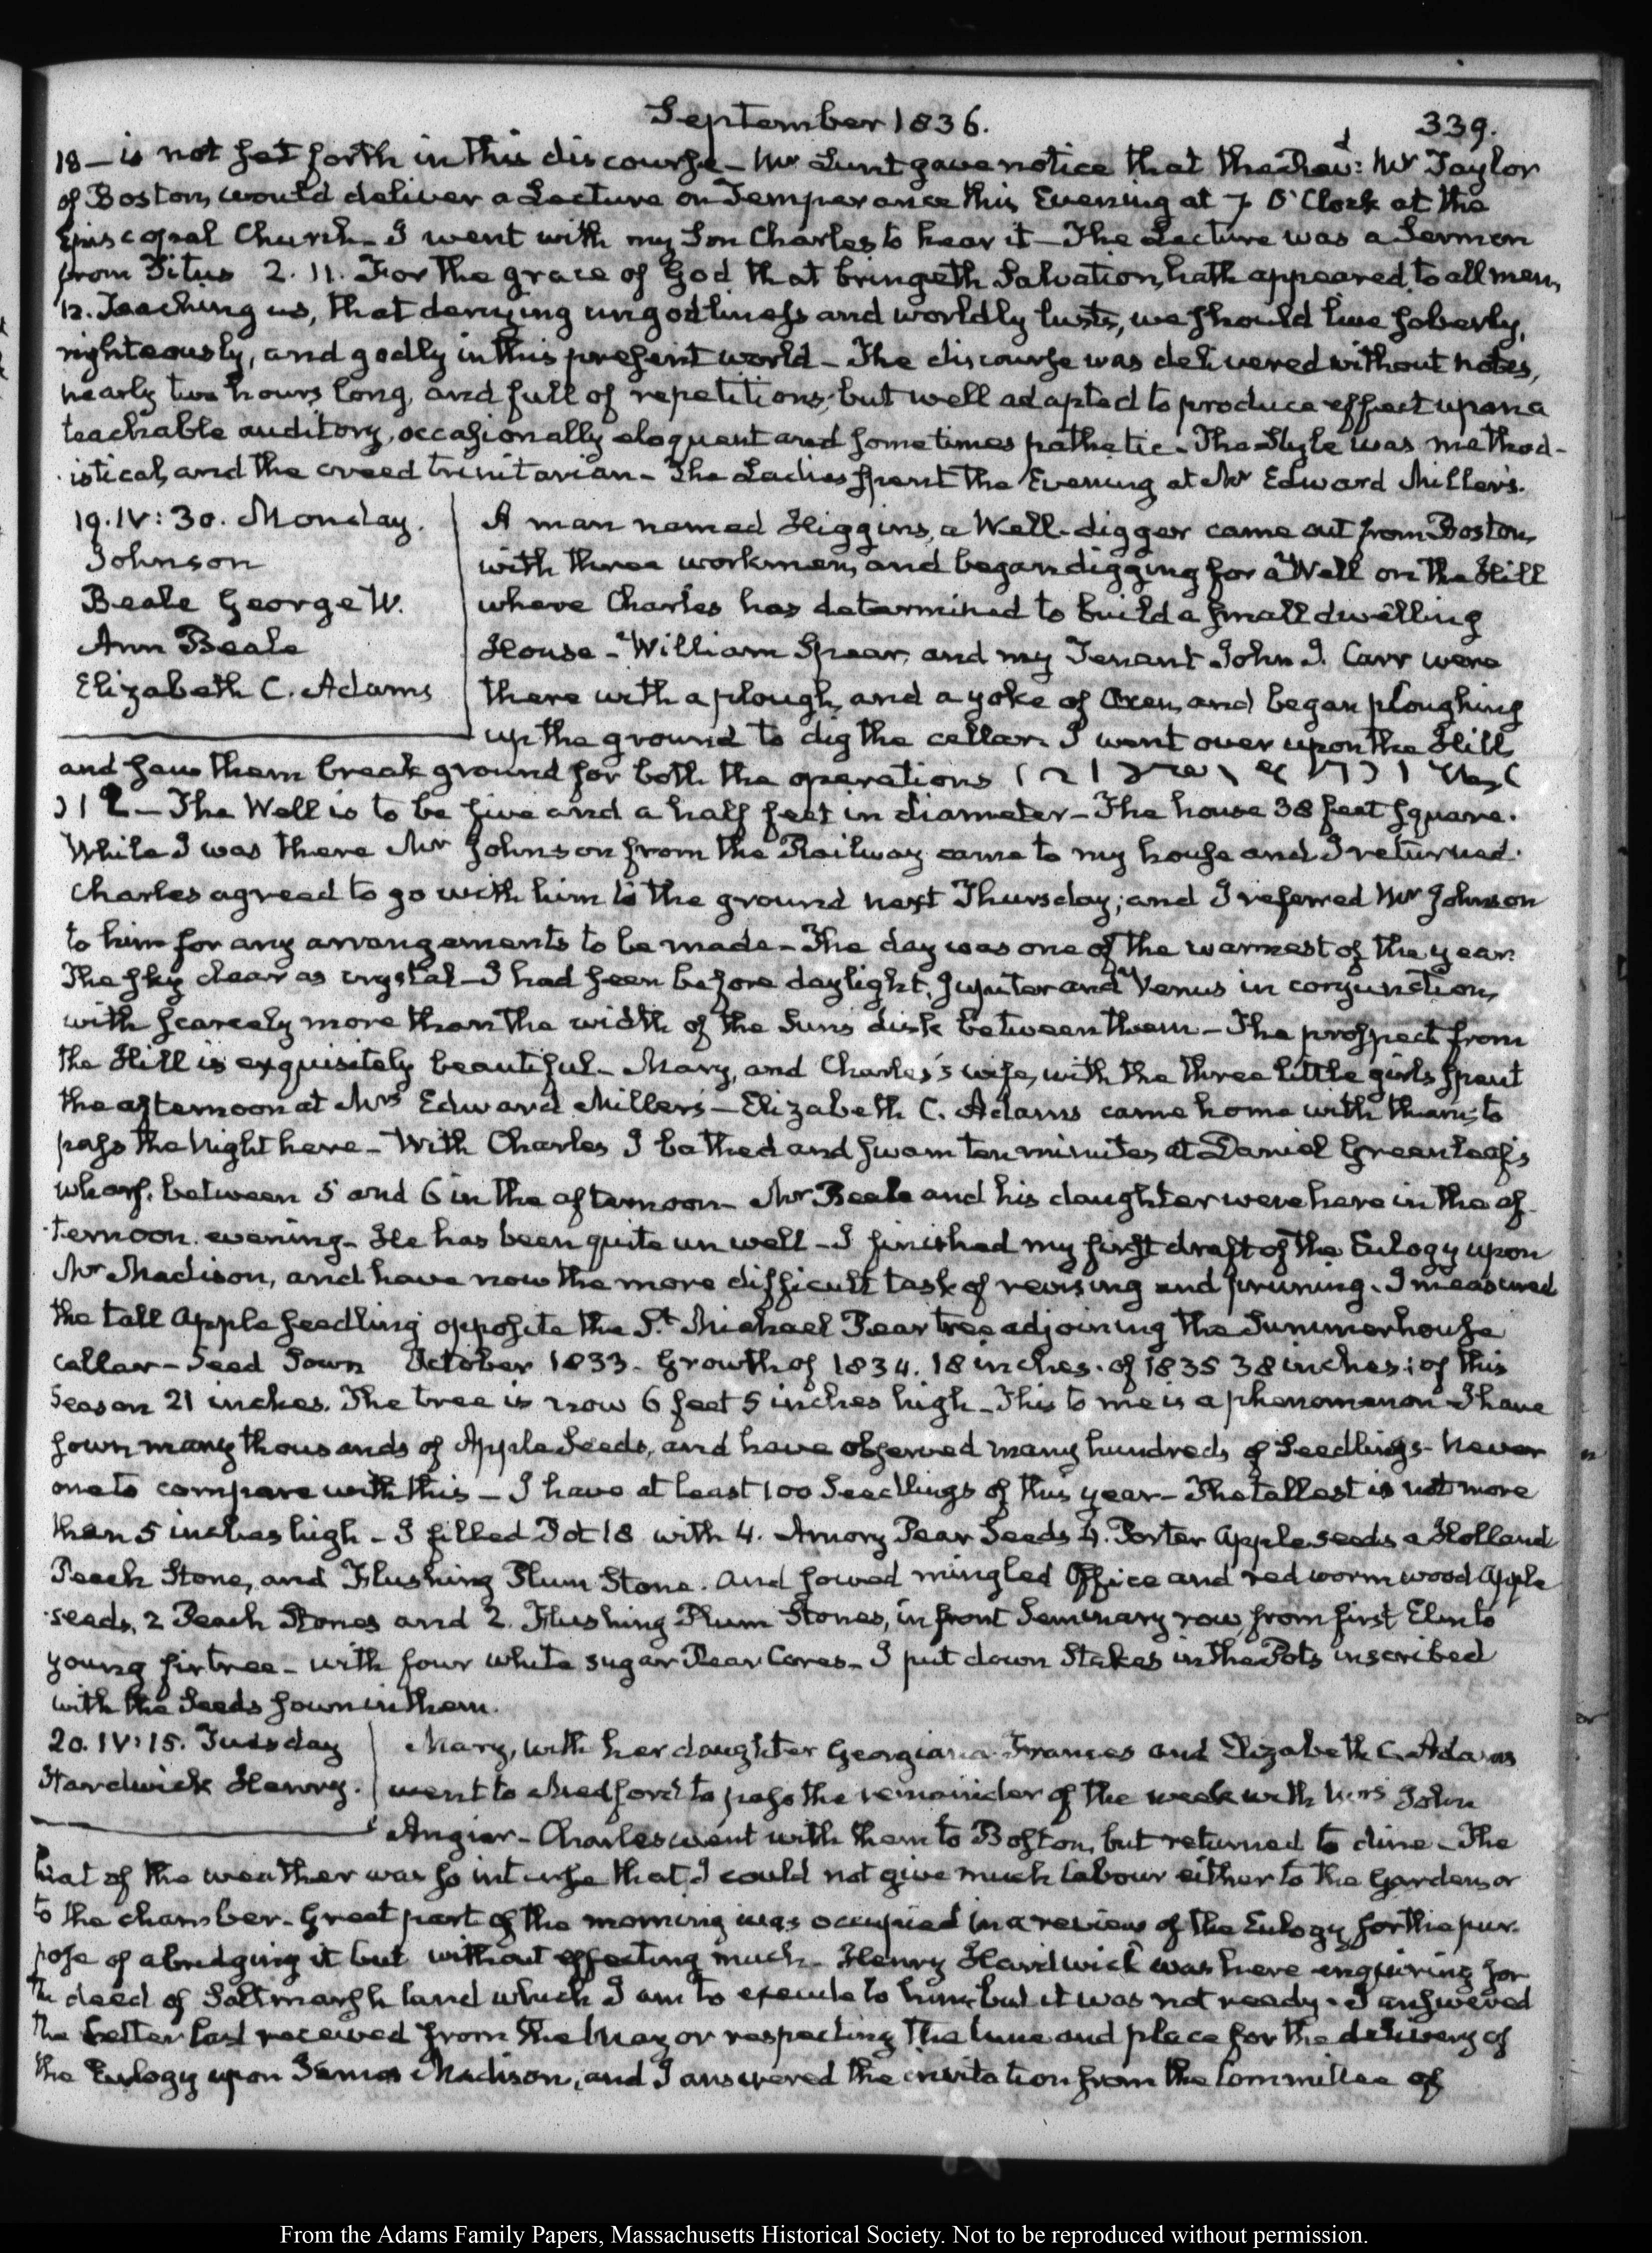 September 1836.
339.
18 — is not set forth in this discourse — Mr Lunt gave notice that the Revd: Mr Taylor
of Boston, would deliver a Lecture on Temperance this Evening at 7 O'Clock at the
Episcopal Church — I went with my Son Charles to hear it — The Lecture was a Sermon
from Titus 2. 11. For the grace of God that bringeth Salvation, hath appeared, to all men,
12. Teaching us, that denying ungodliness and worldly lusts, we should live soberly,
righteously, and godly in this present world — The discourse was delivered without notes,
nearly two hours long, and full of repetitions; but well adapted to produce effect upon a
teachable auditory, occasionally eloquent and sometimes pathetic. The Style was method-
istical, and the creed trinitarian — The Ladies spent the Evening at Mr Edward Miller's.
19. IV: 30. Monday.
Johnson
Beale George W.
Ann Beale
Elizabeth C. Adams
A man named Higgins, a Well-digger came out from Boston,
with three workmen, and began digging for a Well on the Hill
where Charles has determined to build a small dwelling
House — William Spear, and my Tenant John J. Carr were
there with a plough, and a yoke of Oxen, and began ploughing
up the ground to dig the cellar. I went over upon the Hill,
and saw them break ground for both the operations
— The Well is to be five and a half feet in diameter — The house 38 feet square.
While I was there Mr Johnson from the Railway came to my house and I returned.
Charles agreed to go with him to the ground next Thursday; and I referred Mr Johnson
to him for any arrangements to be made — The day was one of the warmest of the year.
The sky clear as crystal — I had seen before daylight, Jupiter and Venus in conjunction,
with scarcely more than the width of the Sun's disk between them — The prospect from
the Hill is exquisitely beautiful — Mary, and Charles's wife, with the three little girls spent
the afternoon at Mrs Edward Miller's — Elizabeth C. Adams came home with them, to
pass the Night here — With Charles I bathed and swam ten minutes at Daniel Greenleaf's
wharf, between 5 and 6 in the afternoon — Mr Beale and his daughter were here in the af-
ternoon evening — He has been quite unwell — I finished my first draft of the Eulogy upon
Mr Madison, and have now the more difficult task of revising and pruning. I measured
the tall Apple seedling opposite the St Michael Pear tree adjoining the Summerhouse
cellar — Seed Sown October 1833. Growth of 1834. 18 inches. of 1835 38 inches; of this
Season 21 inches. The tree is now 6 feet 5 inches high — This to me is a phenomenon I have
sown many thousands of Apple Seeds, and have observed many hundreds of Seedlings — Never
one to compare with this — I have at least 100 Seedlings of this year — The tallest is not more
than 5 inches high — I filled Pot 18 with 4. Amory Pear Seeds 4. Porter Apple seeds a Holland
Peach Stone, and Flushing Plum Stone. and sowed mingled Office and red wormwood Apple
seeds, 2 Peach Stones and 2. Flushing Plum Stones, in front Seminary row, from first Elm to
young fir tree — with four white sugar Pear Cores — I put down Stakes in the Pots inscribed
with the Seeds sown in them.
20. IV: 15. Tuesday
Hardwick Henry.
Mary, with her daughter Georgiana Frances and Elizabeth C. Adams
went to Medford to pass the remainder of the week with Mrs John
Angier — Charles went with them to Boston, but returned to dine — The
heat of the weather was so intense that I could not give much labour either to the Garden, or
to the chamber — Great part of the morning was occupied in a review of the Eulogy for the pur-
pose of abridging it but without effecting much — Henry Hardwick was here enquiring for
the deed of Saltmarsh land which I am to execute to him, but it was not ready. I answered
the Letter last received from the Mayor respecting the time and place for the delivery of
the Eulogy upon James Madison, and I answered the invitation from the Committee of
From the Adams Family Papers, Massachusetts Historical Society. Not to be reproduced without permission.